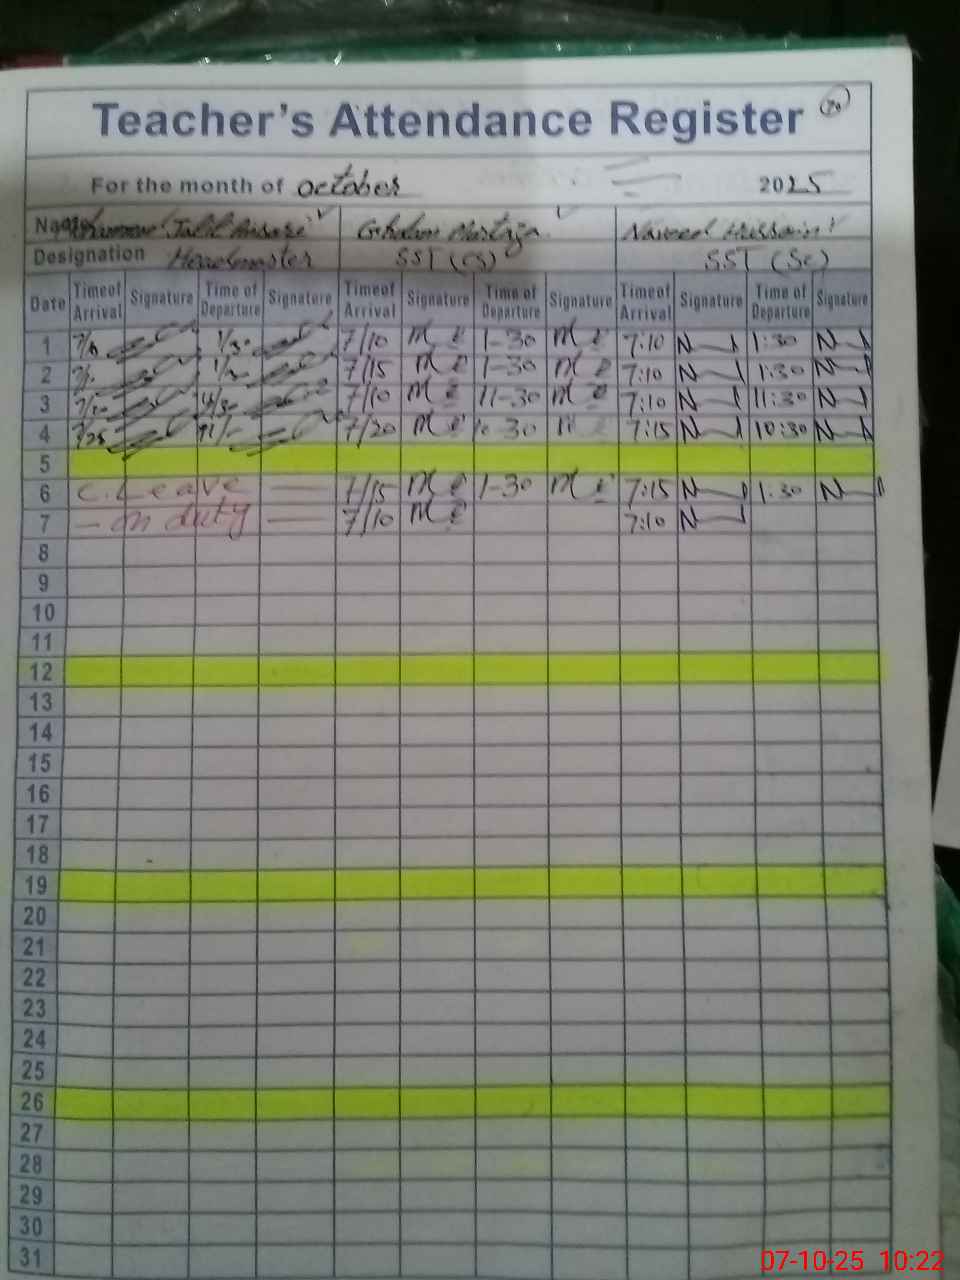 Teacher's Attendance Register
For the month of October 2025
Name Jalil Ansari Ghulam Murtaza Naveed Hussain
Designation Headmaster SST (CS) SST (Sc)
Date Time of Arrival Signature Time of Departure Signature Time of Arrival Signature Time of Departure Signature Time of Arrival Signature Time of Departure Signature
1 7/10 1-30 7:10 N 1:30 N
2 7/15 1-30 7:10 N 1:30 N
3 7/10 11-30 7:10 N 11:30 N
4 7/25 7/20 10-30 7:15 N 10:30 N
5
6 C. Leave — 7/15 1-30 7:15 N 1:30 N
7 — on duty — 7/10 7:10 N
8
9
10
11
12
13
14
15
16
17
18
19
20
21
22
23
24
25
26
27
28
29
30
31
07-10-25 10:22